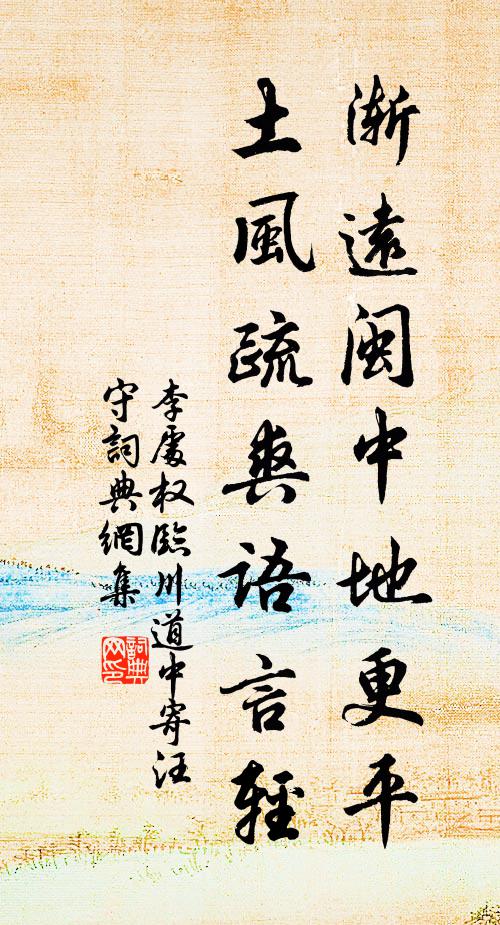 漸遠閩中地更平
土風疏爽語言輕
李處权臨川道中寄汪
守詞典網集
詞典网印